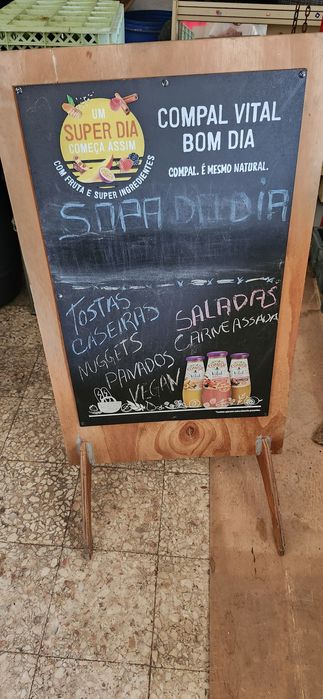 UM
SUPER DIA
COMEÇA ASSIM
COM FRUTA E SUPER INGREDIENTES
COMPAL VITAL
BOM DIA
COMPAL. É MESMO NATURAL.
SOPA DO DIA
TOSTAS
CASEIRAS
NUGGETS
PANADOS
VEGAN
SALADAS
CARNE ASSADA